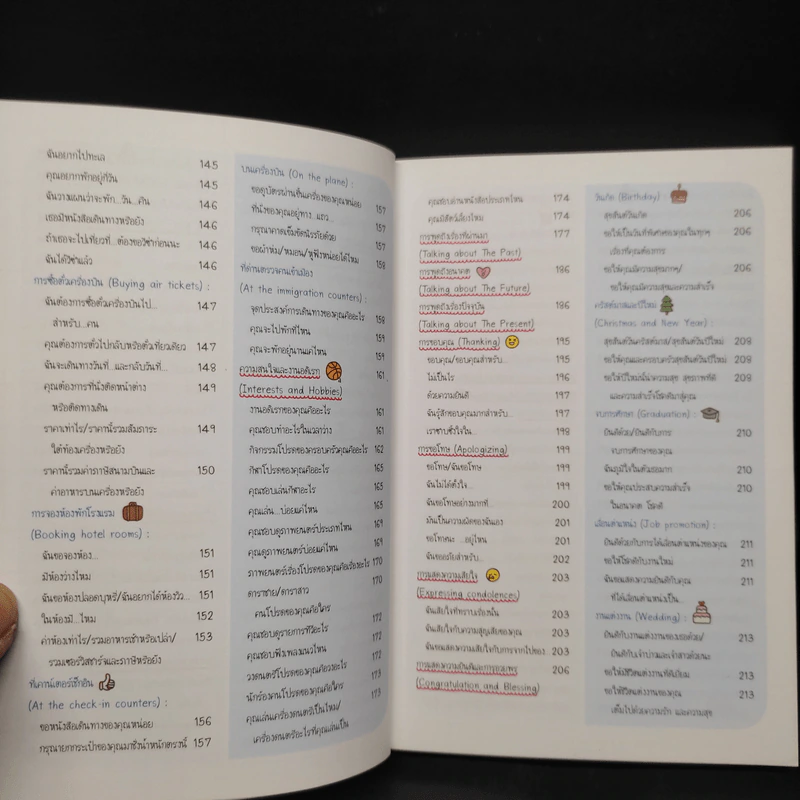 ฉันอยากไปทะเล 145
คุณอยากพักอยู่กี่วัน 145
ฉันวางแผนว่าจะพัก...วัน...คืน 146
เธอมีหนังสือเดินทางหรือยัง 146
ถ้าเธอจะไปเที่ยวที่...ต้องขอวีซ่าก่อนนะ 146
ฉันได้วีซ่าแล้ว 146
การซื้อตั๋วเครื่องบิน (Buying air tickets) :
ฉันต้องการซื้อตั๋วเครื่องบินไป... 147
สำหรับ...คน
คุณต้องการตั๋วไปกลับหรือตั๋วเที่ยวเดียว 147
ฉันจะเดินทางวันที่...และกลับวันที่... 148
คุณต้องการที่นั่งติดหน้าต่าง 149
หรือติดทางเดิน
ราคาเท่าไร/ราคานี้รวมสัมภาระ 149
ใต้ท้องเครื่องหรือยัง
ราคานี้รวมค่าภาษีสนามบินและ 150
ค่าอาหารบนเครื่องหรือยัง
การจองห้องพักโรงแรม
(Booking hotel rooms) :
ฉันขอจองห้อง... 151
มีห้องว่างไหม 151
ฉันขอห้องปลอดบุหรี่/ฉันอยากได้ห้องวิว... 151
ในห้องมี...ไหม 152
ค่าห้องเท่าไร/รวมอาหารเช้าหรือเปล่า/ 153
รวมเซอร์วิสชาร์จและภาษีหรือยัง
ที่เคาน์เตอร์เช็กอิน
(At the check-in counters) :
ขอหนังสือเดินทางของคุณหน่อย 156
กรุณายกกระเป๋าของคุณมาชั่งน้ำหนักตรงนี้ 157
บนเครื่องบิน (On the plane) :
ขอดูบัตรผ่านขึ้นเครื่องของคุณหน่อย 157
ที่นั่งของคุณอยู่ทาง...แถว... 157
กรุณาคาดเข็มขัดนิรภัยด้วย 157
ขอผ้าห่ม/หมอน/หูฟังหน่อยได้ไหม 158
ที่ด่านตรวจคนเข้าเมือง
(At the immigration counters) :
จุดประสงค์การเดินทางของคุณคืออะไร 158
คุณจะไปพักที่ไหน 159
คุณจะพักอยู่นานแค่ไหน 159
ความสนใจและงานอดิเรก 161
(Interests and Hobbies)
งานอดิเรกของคุณคืออะไร 161
คุณชอบทำอะไรในเวลาว่าง 161
กิจกรรมโปรดของครอบครัวคุณคืออะไร 162
กีฬาโปรดของคุณคืออะไร 165
คุณชอบเล่นกีฬาอะไร 165
คุณเล่น...บ่อยแค่ไหน 165
คุณชอบดูภาพยนตร์ประเภทไหน 169
คุณดูภาพยนตร์บ่อยแค่ไหน 169
ภาพยนตร์เรื่องโปรดของคุณคือเรื่องอะไร 170
ดาราชาย/ดาราสาว 170
คนโปรดของคุณคือใคร
คุณชอบดูรายการทีวีอะไร 172
คุณชอบฟังเพลงแนวไหน 172
วงดนตรีโปรดของคุณคือวงอะไร 172
นักร้องคนโปรดของคุณคือใคร 173
คุณเล่นเครื่องดนตรีเป็นไหม/ 173
เครื่องดนตรีอะไรที่คุณเล่นเป็น
คุณชอบอ่านหนังสือประเภทไหน 174
คุณมีสัตว์เลี้ยงไหม 174
การพูดถึงเรื่องที่ผ่านมา 177
(Talking about The Past)
การพูดถึงอนาคต 186
(Talking about The Future)
การพูดถึงเรื่องปัจจุบัน 186
(Talking about The Present)
การขอบคุณ (Thanking) 195
ขอบคุณ/ขอบคุณสำหรับ... 195
ไม่เป็นไร 196
ด้วยความยินดี 197
ฉันรู้สึกขอบคุณมากสำหรับ... 197
เราซาบซึ้งใจใน... 198
การขอโทษ (Apologizing) 199
ขอโทษ/ฉันขอโทษ 199
ฉันไม่ได้ตั้งใจ... 199
ฉันขอโทษอย่างมากที่... 200
มันเป็นความผิดของฉันเอง 201
ขอโทษนะ ...อยู่ไหน 201
ฉันขออภัยสำหรับ... 202
การแสดงความเสียใจ 203
(Expressing condolences)
ฉันเสียใจที่ทราบเรื่องนั้น 203
ฉันเสียใจกับความสูญเสียของคุณ 203
ฉันขอแสดงความเสียใจกับการจากไปของ 203
การแสดงความยินดีและการอวยพร 206
(Congratulation and Blessing)
วันเกิด (Birthday) :
สุขสันต์วันเกิด 206
ขอให้เป็นวันที่พิเศษของคุณในทุกๆ 206
เรื่องที่คุณต้องการ
ขอให้คุณมีความสุขมากๆ/ 206
ขอให้คุณมีความสุขและความสำเร็จ
คริสต์มาสและปีใหม่
(Christmas and New Year) :
สุขสันต์วันคริสต์มาส/สุขสันต์วันปีใหม่ 208
ขอให้คุณและครอบครัวสุขสันต์วันปีใหม่ 208
ขอให้ปีใหม่นี้นำความสุข สุขภาพที่ดี 209
และความสำเร็จโชคดีมาสู่คุณ
จบการศึกษา (Graduation) :
ยินดีด้วย/ยินดีกับการ 210
จบการศึกษาของคุณ
ฉันภูมิใจในตัวเธอมาก 210
ขอให้คุณประสบความสำเร็จ 210
ในอนาคต โชคดี
เลื่อนตำแหน่ง (Job promotion) :
ยินดีด้วยกับการได้เลื่อนตำแหน่งของคุณ 211
ขอให้โชคดีกับงานใหม่ 211
ฉันขอแสดงความยินดีกับคุณ 211
ที่ได้เลื่อนตำแหน่งเป็น...
งานแต่งงาน (Wedding) :
ยินดีกับงานแต่งงานของเธอด้วย/ 213
ยินดีกับเจ้าบ่าวและเจ้าสาวด้วยนะ
ขอให้มีชีวิตแต่งงานที่ดีเยี่ยม 213
ขอให้ชีวิตแต่งงานของคุณ 213
เต็มไปด้วยความรัก และความสุข